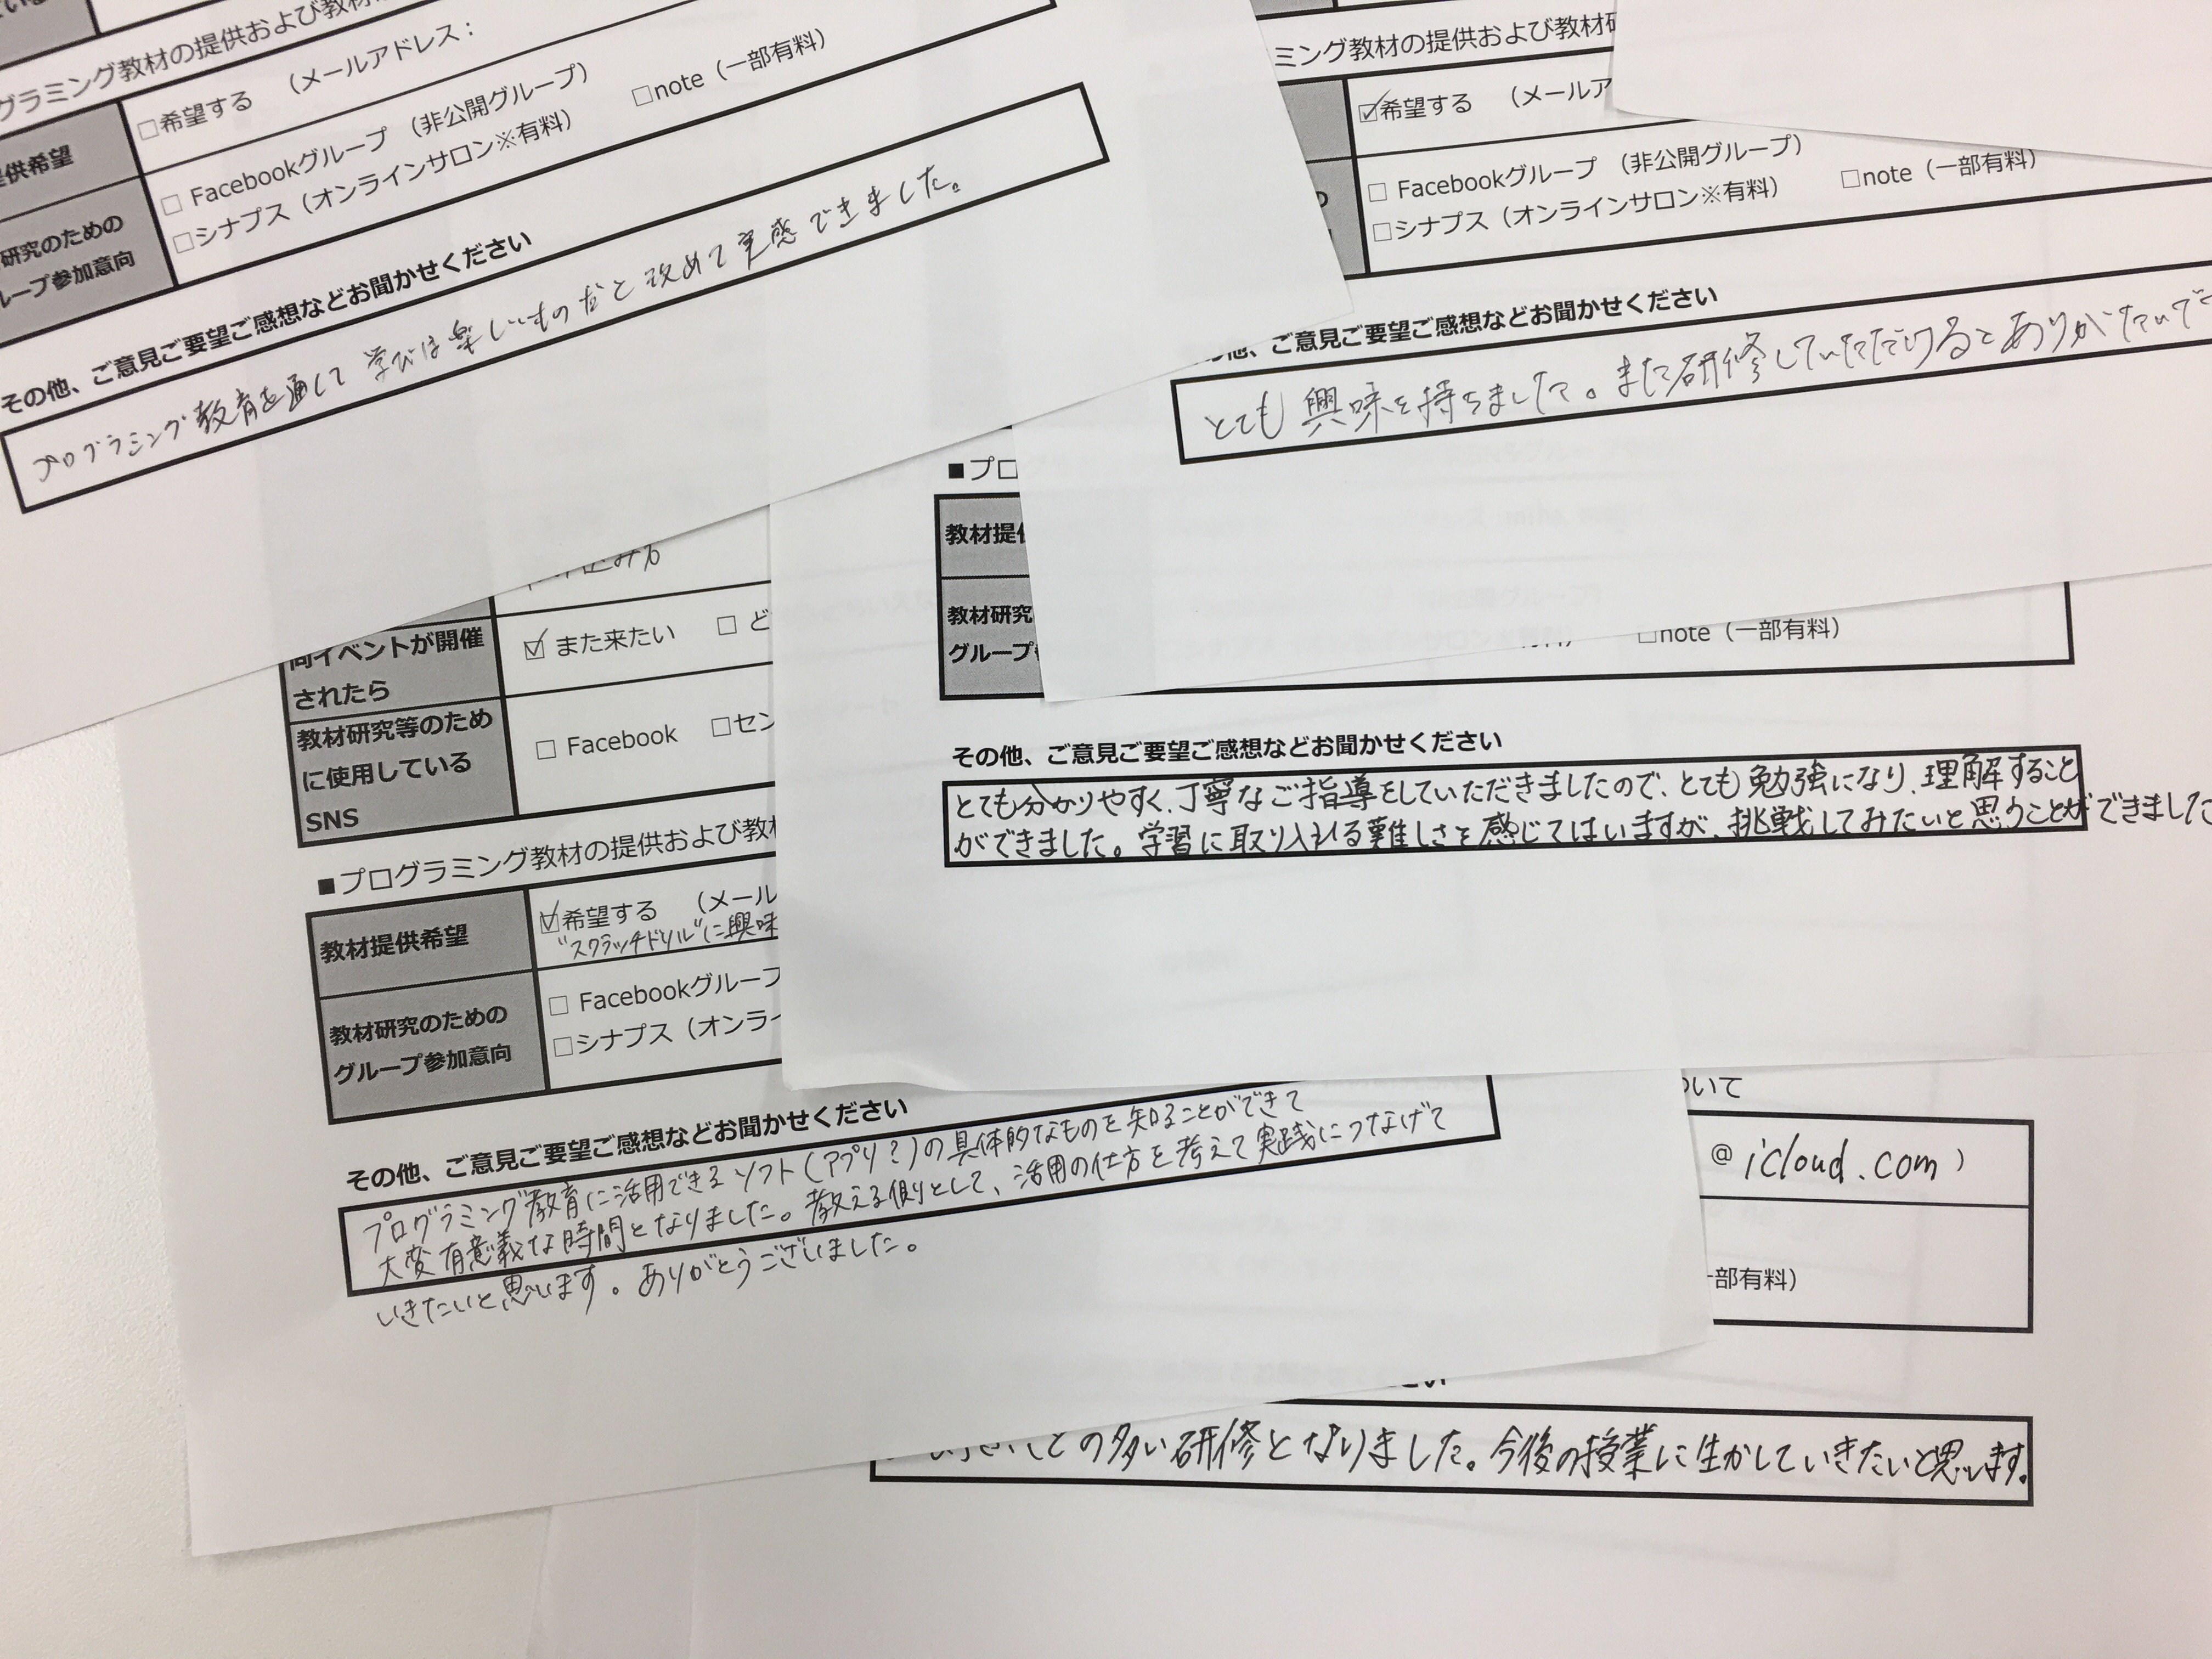 グラミング教材の提供および教材
□希望する （メールアドレス：
供希望
□ Facebookグループ （非公開グループ）
□シナプス（オンラインサロン※有料） □note（一部有料）
研究のための
ループ参加意向
その他、ご意見ご要望ご感想などお聞かせください
プログラミング教育を通して 学びは楽しいものだと改めて実感できました。
ミング教材の提供および教材研
☑希望する （メールア
□ Facebookグループ （非公開グループ）
□シナプス（オンラインサロン※有料） □note（一部有料）
の他、ご意見ご要望ご感想などお聞かせください
とても興味を持ちました。また研修していただけるとありがたいで
■プロ
教材提供
教材研究
グループ
□note（一部有料）
その他、ご意見ご要望ご感想などお聞かせください
とても分かりやすく、丁寧なご指導をしていただきましたので、とても勉強になり、理解すること
ができました。学習に取り入れる難しさを感じてはいますが、挑戦してみたいと思うことができました
同イベントが開催
されたら
☑ また来たい □ ど
教材研究等のため
に使用している
SNS
□ Facebook □セン
■プログラミング教材の提供および教材
教材提供希望
☑希望する （メール
"スクラッチドリル"に興味
教材研究のための
グループ参加意向
□ Facebookグループ
□シナプス（オンライ
その他、ご意見ご要望ご感想などお聞かせください
プログラミング教育に活用できるソフト（アプリ？）の具体的なものを知ることができて
大変有意義な時間となりました。教える側として、活用の仕方を考えて実践につなげて
いきたいと思います。ありがとうございました。
ついて
@icloud.com）
一部有料）
との多い研修となりました。今後の授業に生かしていきたいと思います。